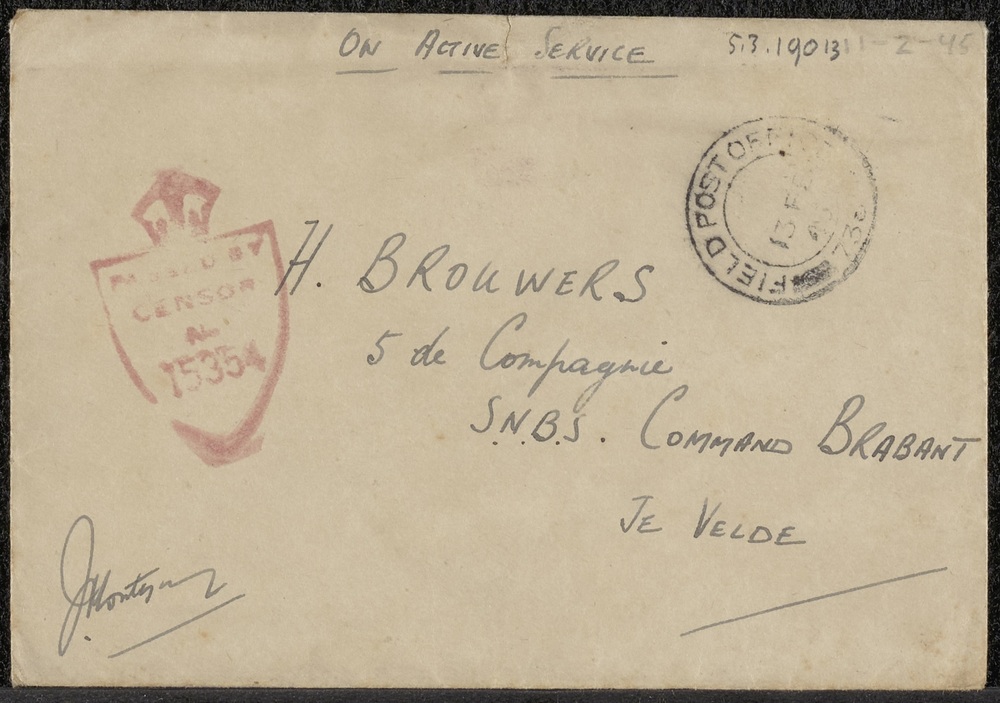 ON ACTIVE SERVICE
5.3.1901311-2-45
FIELD POST OFFICE 73
13 FE
PASSED BY
CENSOR
No
15354
H. BROUWERS
5 de Compagnie
S.N.B.S. COMMAND BRABANT
JE VELDE